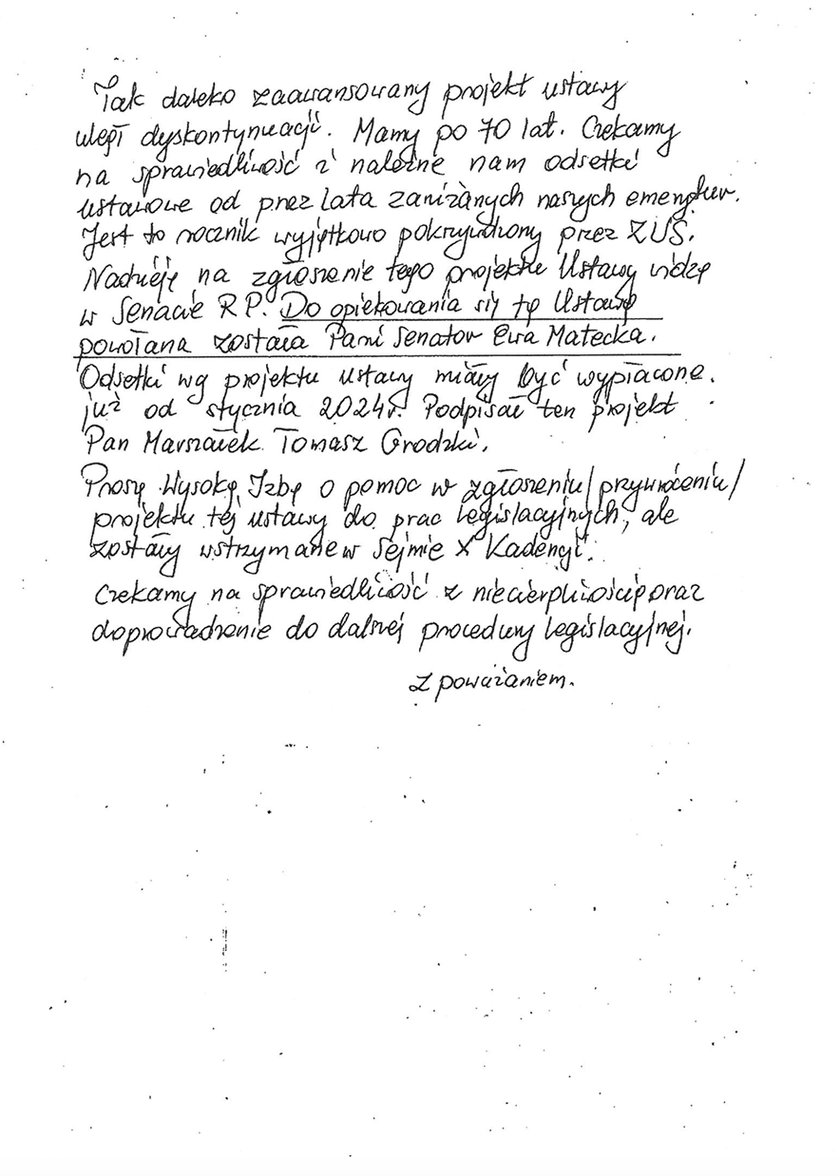 Tak daleko zaawansowany projekt ustawy
uległ dyskontynuacji. Mamy po 70 lat. Czekamy
na sprawiedliwość i należne nam odsetki
ustawowe od przez lata zaniżanych naszych emerytur.
Jest to rocznik wyjątkowo pokrzywdzony przez ZUS.
Nadzieję na zgłoszenie tego projektu Ustawy widzę
w Senacie RP. Do opiekowania się tą Ustawą
powołana została Pani Senator Ewa Matecka.
Odsetki wg projektu ustawy miały być wypłacone.
już od stycznia 2024r. Podpisał ten projekt
Pan Marszałek Tomasz Grodzki.
Proszę Wysoką Izbę o pomoc w zgłoszeniu/przywróceniu/
projektu tej ustawy do prac legislacyjnych, ale
zostały wstrzymane w Sejmie X Kadencji.
Czekamy na sprawiedliwość z niecierpliwością oraz
doprowadzenie do dalszej procedury legislacyjnej.
Z poważaniem.